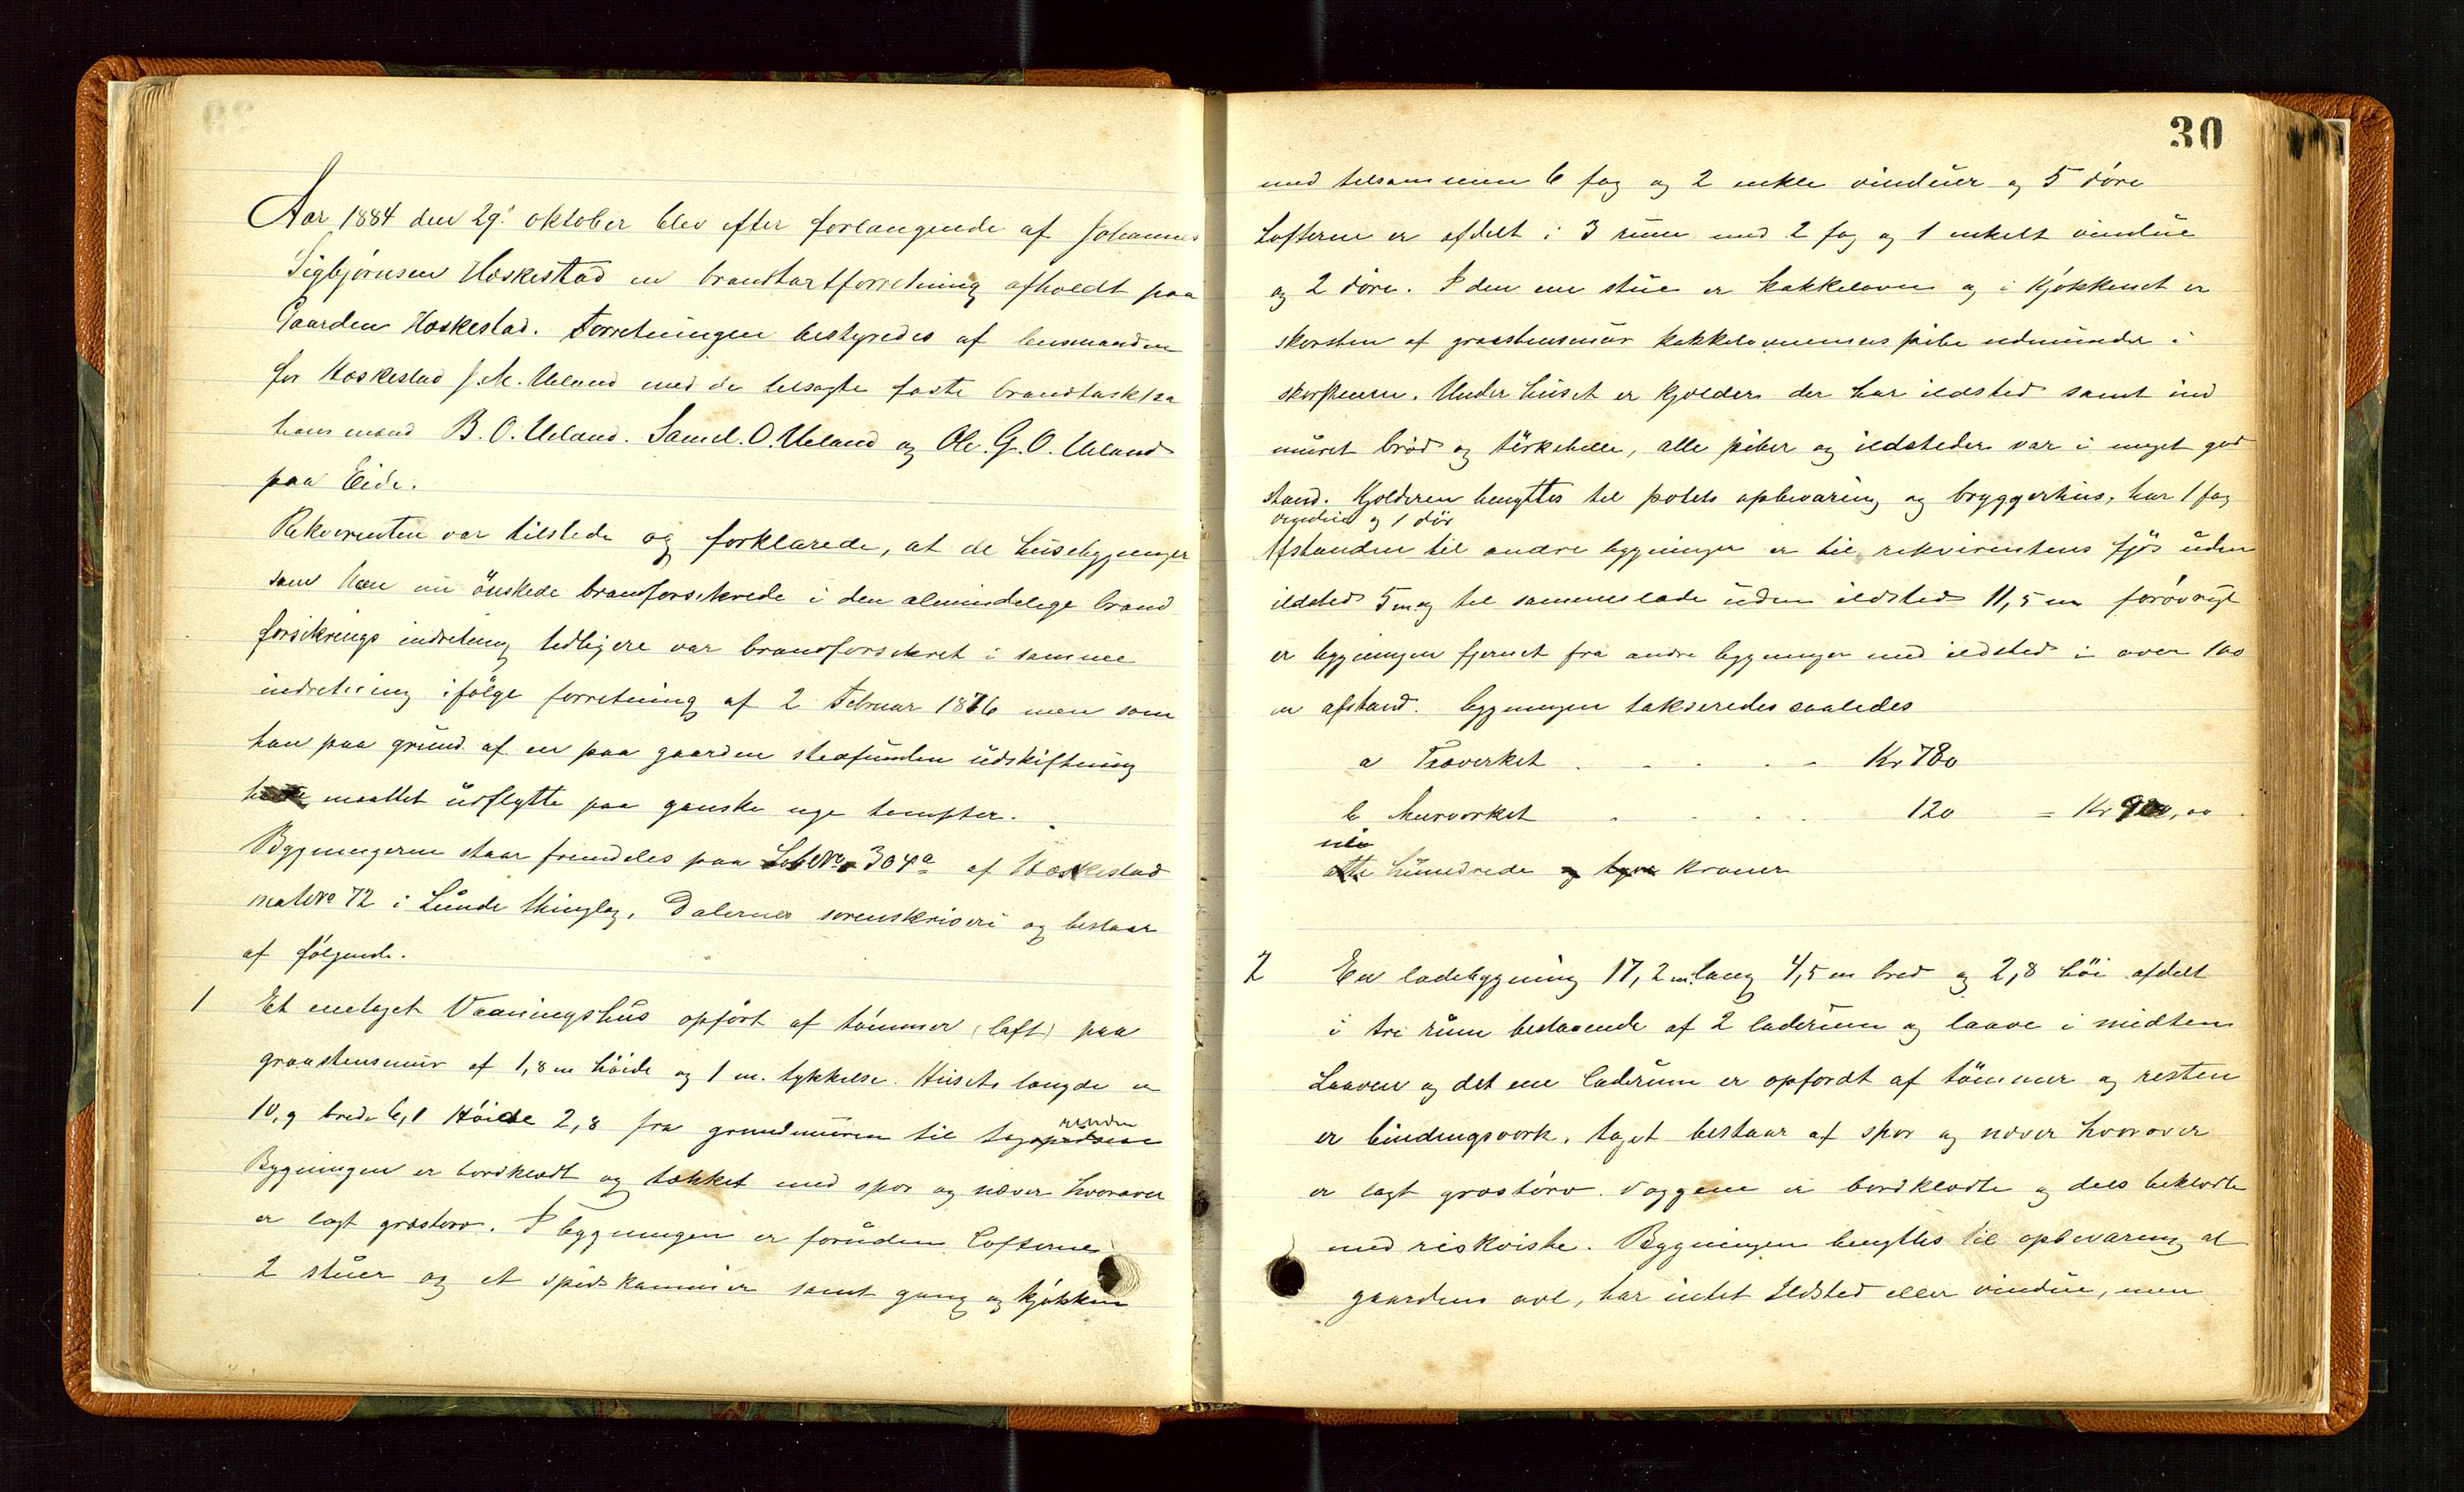 Aar 1884 den 29' oktober blev efter forlangende af Johannes
Sigbjørnsen Hæskestad en brandtaxtforretning afholdt paa
Gaarden Hæskestad. Forretningen bestyredes af lensmanden
for Hæskestad J. M. Ueland med de tilsagte faste brandtaksta
tions mænd B. O. Ueland. Samel. O. Ueland og Ole. G. O. Ueland
paa Eide.
Rekvirenten var tilstede og forklarede, at de husebygninger
som han nu önskede brandforsikrede i den almindelige brand
forsikrings indretning tidligere var brandforsikret i samme
indretning ifölge forretning af 2 Februar 1876 men som
han paa grund af en paa gaarden stedfunden udskiftning
havde maattet udflytte paa ganske nye tompter.
Bygningerne staar fremdeles paa Løb No 304a af Hæskestad
mat No 72 i Lunde thinglag, Dalernes sorenskriveri og bestaar
af følgende.
1 Et enetaget Vaaningshus opført af tømmer (laft) paa
graastensmur af 1,8 m höide og 1 m. tykkelse. Husets længde er
10,9 brede 6,1 Höide 2,8 fra grundmuren til tag
renden
Bygningen er bordklædt og tækket med spor og næver hvorover
er lagt græstorv. I bygningen er foruden Lofterne
2 stuer og et spiskammer samt gang og kjøkken
30
med tilsammen 6 fag og 2 enkle vinduer og 5 døre
Lofterne er afdelt i 3 rum med 2 fag og 1 enkelt vindue
og 2 døre. I den ene stue er kakkelovn og i kjøkkenet er
skorsten af graastensmur kakkelovnensens pibe udmunder i
skorstenen. Under huset er kjelder der har ildsted samt ind
muret bröd og törkehelle, alle piber og ildsteder var i meget god
stand. Kjelderen benyttes til potets opbevaring og bryggerhus, har 1 fag
vindue og 1 dör
Afstanden til andre bygninger er til rekvirentens fjös uden
ildsted 5 m og til sammes lade uden ildsted 11,5 m forøvrigt
er bygningen fjernet fra andre bygninger med ildsted i over 100
m afstand. bygningen takseredes saaledes
a Træverket . . . . . Kr 780
b Murverket . . . . 120 = Kr 900,00
ni
otte hundrede og tyve kroner
2 En ladebygning 17,2 m lang 4,5 m bred og 2,8 höi afdelt
i tre rum bestaaende af 2 laderum og laave i midten
Laaven og det ene laderum er opfördt af tömmer og resten
er bindingsverk, taget bestaar af spor og næver hvorover
er lagt græstörv. Væggene er bordklædte og dels beklædte
med riskviste. Bygningen benyttes til opbevaring af
gaardens avl, har intet Ildsted eller vindue, men